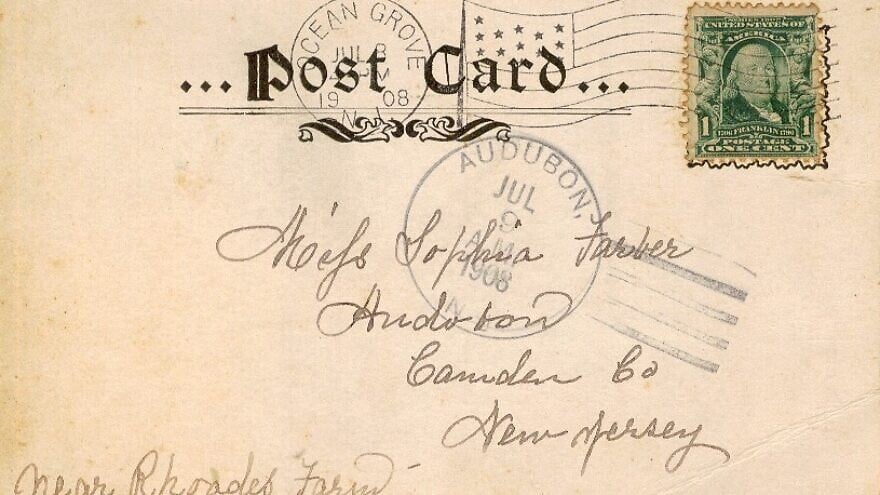 OCEAN GROVE
JUL 8
PM
19 08
N.J.
...Post Card...
SERIES 1902
UNITED STATES OF
AMERICA
1 1706 FRANKLIN 1790 1
POSTAGE
ONE CENT
AUDUBON,
JUL
9
A.M.
1908
N.
Miss Sophia Farber
Audobon
Camden Co
New Jersey
Near Rhoades Farm